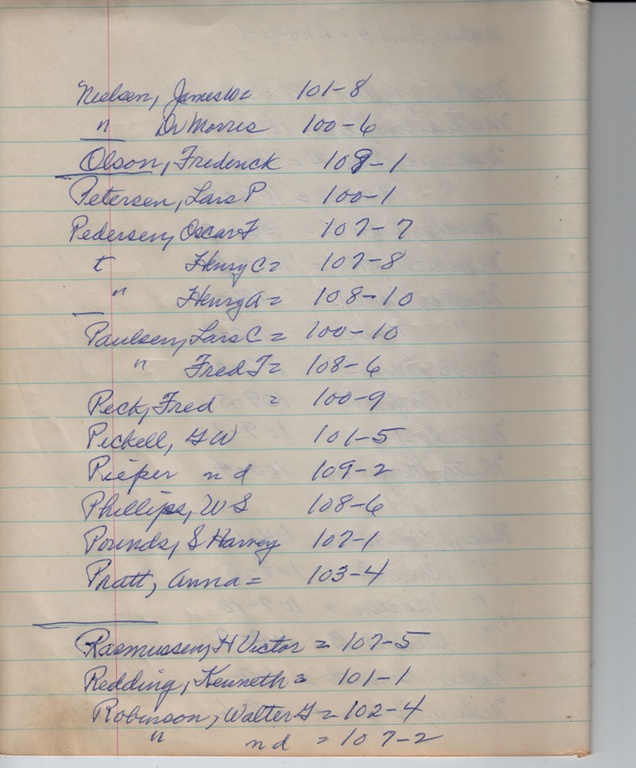 Nielsen, James W= 101-8
" Dr Morris 100-6
Olson, Frederick 108-1
Petersen, Lars P 100-1
Pedersen, Oscar F 107-7
" Henry C= 107-8
" Henry A= 108-10
Paulsen, Lars C= 100-10
" Fred T= 108-6
Peck, Fred = 100-9
Pickell, G W 101-5
Pieper n d 109-2
Phillips, W S 108-6
Pounds, S Harvey 107-1
Pratt, Anna= 103-4
Rasmussen, H Victor = 107-5
Redding, Kenneth= 101-1
Robinson, Walter G= 102-4
" n d = 107-2